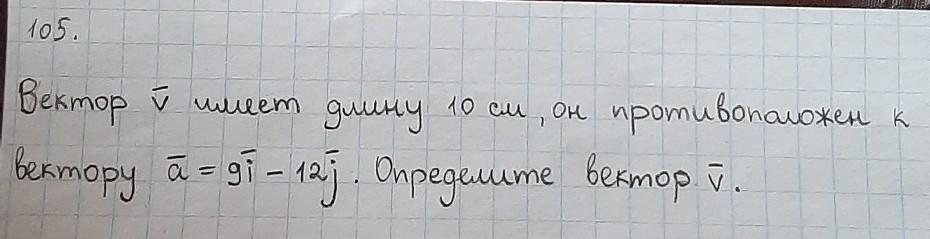 105.
Вектор v̄ имеет длину 10 см, он противоположен к
вектору ā = 9ī - 12j̄. Определите вектор v̄.